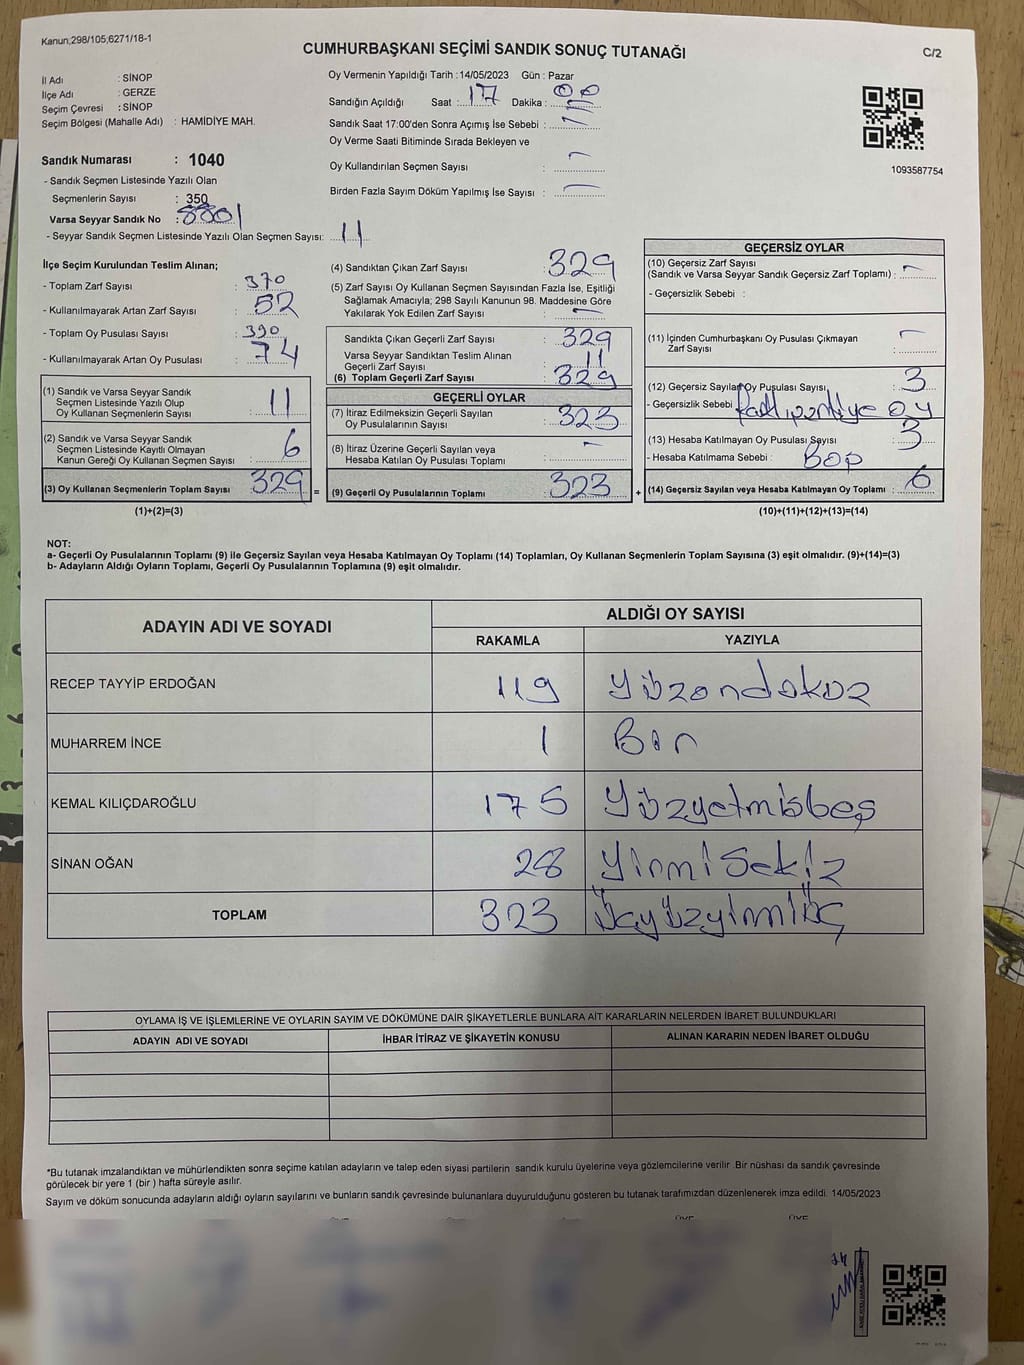 Kanun;298/105,6271/18-1
CUMHURBAŞKANI SEÇİMİ SANDIK SONUÇ TUTANAĞI
C/2
İl Adı : SİNOP
İlçe Adı : GERZE
Seçim Çevresi : SİNOP
Seçim Bölgesi (Mahalle Adı) : HAMİDİYE MAH.
Oy Vermenin Yapıldığı Tarih : 14/05/2023 Gün : Pazar
Sandığın Açıldığı Saat : 17 Dakika : 00
Sandık Saat 17:00'den Sonra Açımış İse Sebebi : –
Oy Verme Saati Bitiminde Sırada Bekleyen ve
Oy Kullandırılan Seçmen Sayısı : –
Birden Fazla Sayım Döküm Yapılmış İse Sayısı : –
1093587754
Sandık Numarası : 1040
- Sandık Seçmen Listesinde Yazılı Olan
Seçmenlerin Sayısı : 350
Varsa Seyyar Sandık No :
- Seyyar Sandık Seçmen Listesinde Yazılı Olan Seçmen Sayısı: 11
İlçe Seçim Kurulundan Teslim Alınan;
- Toplam Zarf Sayısı : 370
- Kullanılmayarak Artan Zarf Sayısı : 52
- Toplam Oy Pusulası Sayısı : 390
- Kullanılmayarak Artan Oy Pusulası : 74
(1) Sandık ve Varsa Seyyar Sandık
Seçmen Listesinde Yazılı Olup
Oy Kullanan Seçmenlerin Sayısı : 11
(2) Sandık ve Varsa Seyyar Sandık
Seçmen Listesinde Kayıtlı Olmayan
Kanun Gereği Oy Kullanan Seçmen Sayısı : 6
(3) Oy Kullanan Seçmenlerin Toplam Sayısı : 329 =
(1)+(2)=(3)
(4) Sandıktan Çıkan Zarf Sayısı : 329
(5) Zarf Sayısı Oy Kullanan Seçmen Sayısından Fazla İse, Eşitliği
Sağlamak Amacıyla; 298 Sayılı Kanunun 98. Maddesine Göre
Yakılarak Yok Edilen Zarf Sayısı : –
Sandıkta Çıkan Geçerli Zarf Sayısı : 329
Varsa Seyyar Sandıktan Teslim Alınan
Geçerli Zarf Sayısı : 11
(6) Toplam Geçerli Zarf Sayısı : 329
GEÇERLİ OYLAR
(7) İtiraz Edilmeksizin Geçerli Sayılan
Oy Pusulalarının Sayısı : 323
(8) İtiraz Üzerine Geçerli Sayılan veya
Hesaba Katılan Oy Pusulası Toplamı : –
(9) Geçerli Oy Pusulalarının Toplamı : 323 +
GEÇERSİZ OYLAR
(10) Geçersiz Zarf Sayısı
(Sandık ve Varsa Seyyar Sandık Geçersiz Zarf Toplamı) : –
- Geçersizlik Sebebi :
(11) İçinden Cumhurbaşkanı Oy Pusulası Çıkmayan
Zarf Sayısı : –
(12) Geçersiz Sayılan Oy Pusulası Sayısı : 3
- Geçersizlik Sebebi : partiye oy
(13) Hesaba Katılmayan Oy Pusulası Sayısı : 3
- Hesaba Katılmama Sebebi : Boş
(14) Geçersiz Sayılan veya Hesaba Katılmayan Oy Toplamı : 6
(10)+(11)+(12)+(13)=(14)
NOT:
a- Geçerli Oy Pusulalarının Toplamı (9) ile Geçersiz Sayılan veya Hesaba Katılmayan Oy Toplamı (14) Toplamları, Oy Kullanan Seçmenlerin Toplam Sayısına (3) eşit olmalıdır. (9)+(14)=(3)
b- Adayların Aldığı Oyların Toplamı, Geçerli Oy Pusulalarının Toplamına (9) eşit olmalıdır.
ADAYIN ADI VE SOYADI
ALDIĞI OY SAYISI
RAKAMLA YAZIYLA
RECEP TAYYİP ERDOĞAN 119 Yüzondokuz
MUHARREM İNCE 1 Bir
KEMAL KILIÇDAROĞLU 175 Yüzyetmişbeş
SİNAN OĞAN 28 Yirmi Sekiz
TOPLAM 323 Üçyüzyirmiüç
OYLAMA İŞ VE İŞLEMLERİNE VE OYLARIN SAYIM VE DÖKÜMÜNE DAİR ŞİKAYETLERLE BUNLARA AİT KARARLARIN NELERDEN İBARET BULUNDUKLARI
ADAYIN ADI VE SOYADI İHBAR İTİRAZ VE ŞİKAYETİN KONUSU ALINAN KARARIN NEDEN İBARET OLDUĞU
*Bu tutanak imzalandıktan ve mühürlendikten sonra seçime katılan adayların ve talep eden siyasi partilerin sandık kurulu üyelerine veya gözlemcilerine verilir .Bir nüshası da sandık çevresinde
görülecek bir yere 1 (bir ) hafta süreyle asılır.
Sayım ve döküm sonucunda adayların aldığı oyların sayılarını ve bunların sandık çevresinde bulunanlara duyurulduğunu gösteren bu tutanak tarafımızdan düzenlenerek imza edildi. 14/05/2023
ÜYE ÜYE